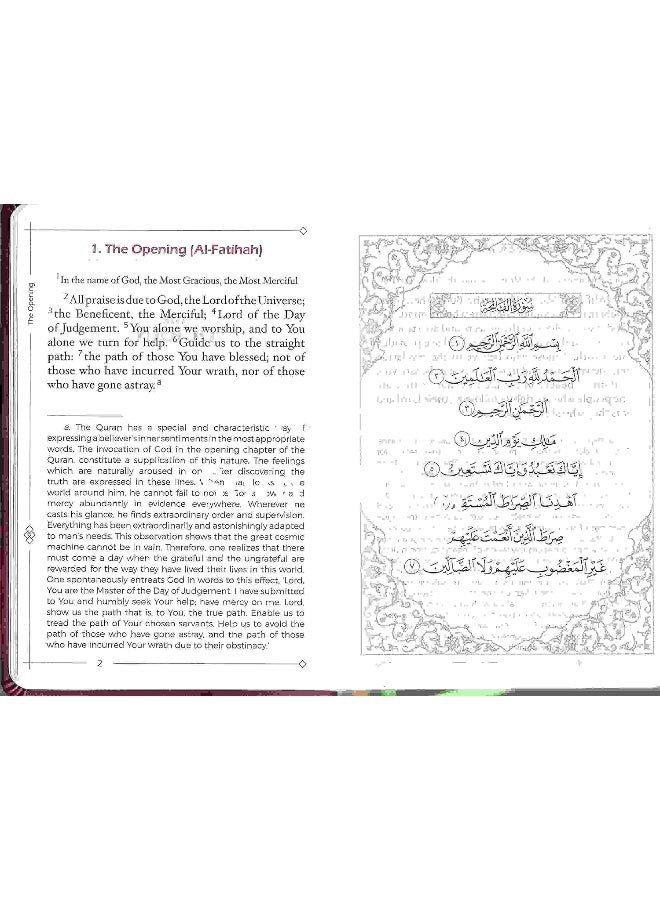 The Opening
1. The Opening (Al-Fatihah)
¹In the name of God, the Most Gracious, the Most Merciful
²All praise is due to God, the Lord of the Universe;
³the Beneficent, the Merciful; ⁴Lord of the Day
of Judgement. ⁵You alone we worship, and to You
alone we turn for help. ⁶Guide us to the straight
path: ⁷the path of those You have blessed; not of
those who have incurred Your wrath, nor of those
who have gone astray.ª
a. The Quran has a special and characteristic
expressing a believer's inner sentiments in the most appropriate
words. The invocation of God in the opening chapter of the
Quran, constitute a supplication of this nature. The feelings
which are naturally aroused in discovering the
truth are expressed in these lines.
world around him, he cannot fail to
mercy abundantly in evidence everywhere. Wherever he
casts his glance, he finds extraordinary order and supervision.
Everything has been extraordinarily and astonishingly adapted
to man's needs. This observation shows that the great cosmic
machine cannot be in vain. Therefore, one realizes that there
must come a day when the grateful and the ungrateful are
rewarded for the way they have lived their lives in this world.
One spontaneously entreats God in words to this effect, 'Lord,
You are the Master of the Day of Judgement. I have submitted
to You and humbly seek Your help; have mercy on me. Lord,
show us the path that is, to You, the true path. Enable us to
tread the path of Your chosen servants. Help us to avoid the
path of those who have gone astray, and the path of those
who have incurred Your wrath due to their obstinacy.'
2
سُورَةُ الفَاتِحَةِ
بِسْمِ اللَّهِ الرَّحْمَٰنِ الرَّحِيمِ ١
الْحَمْدُ لِلَّهِ رَبِّ الْعَالَمِينَ ٢
الرَّحْمَٰنِ الرَّحِيمِ ٣
مَالِكِ يَوْمِ الدِّينِ ٤
إِيَّاكَ نَعْبُدُ وَإِيَّاكَ نَسْتَعِينُ ٥
اهْدِنَا الصِّرَاطَ
صِرَاطَ الَّذِينَ أَنْعَمْتَ عَلَيْهِمْ
غَيْرِ الْمَغْضُوبِ عَلَيْهِمْ وَلَا الضَّالِّينَ ٧